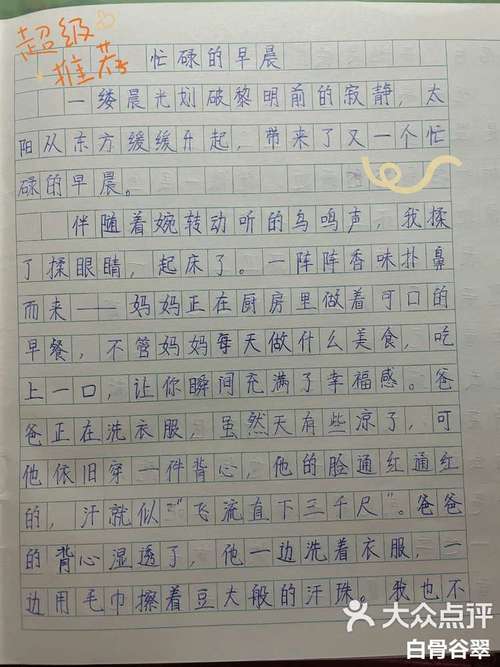 超级
推荐
忙碌的早晨
一缕晨光划破黎明前的寂静，太
阳从东方缓缓升起，带来了又一个忙
碌的早晨。
伴随着婉转动听的鸟鸣声，我揉
了揉眼睛，起床了。一阵阵香味扑鼻
而来——妈妈正在厨房里做着可口的
早餐，不管妈妈每天做什么美食，吃
上一口，让你瞬间充满了幸福感。爸
爸正在洗衣服，虽然天有些凉了，可
他依旧穿一件背心，他的脸通红通红
的，汗就似“飞流直下三千尺”。爸爸
的背心湿透了，他一边洗着衣服，一
边用毛巾擦着豆大般的汗珠。我也不
大众点评
白骨谷翠